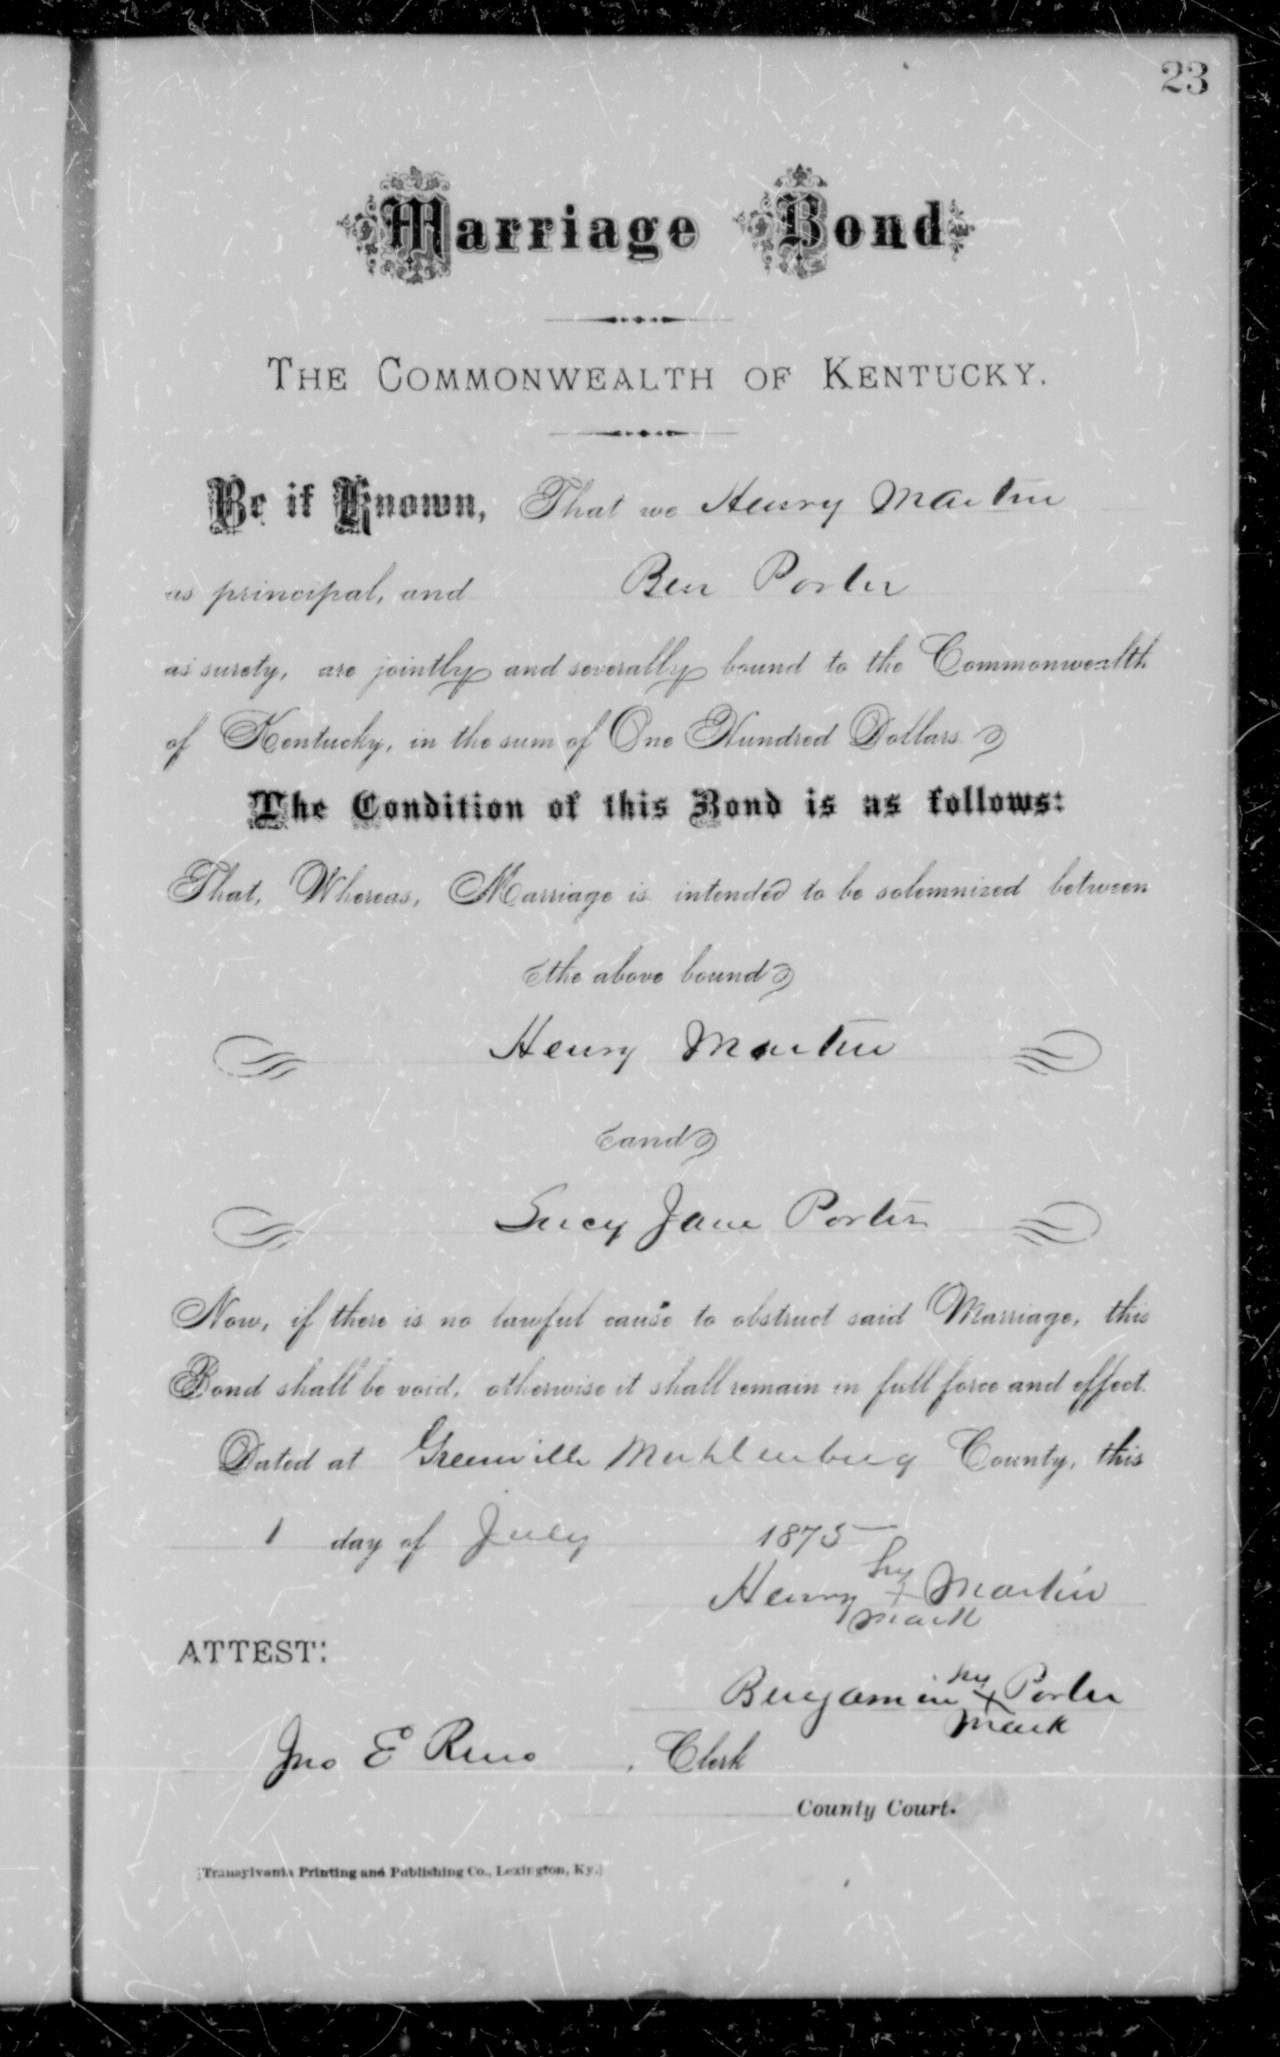 23
Marriage Bond
THE COMMONWEALTH OF KENTUCKY.
Be it Known, That we Henry Martin
as principal, and Ben Porter
as surety, are jointly and severally bound to the Commonwealth
of Kentucky, in the sum of One Hundred Dollars.
The Condition of this Bond is as follows:
That, Whereas, Marriage is intended to be solemnized between
the above bound
Henry Martin
and
Lucy Jane Porter
Now, if there is no lawful cause to obstruct said Marriage, this
Bond shall be void, otherwise it shall remain in full force and effect.
Dated at Greenville Muhlenburg County, this
1 day of July 1875
his
Henry X Martin
mark
ATTEST:
his
Benjamin X Porter
mark
Jno E Reno, Clerk
County Court.
[Transylvania Printing and Publishing Co., Lexington, Ky.]